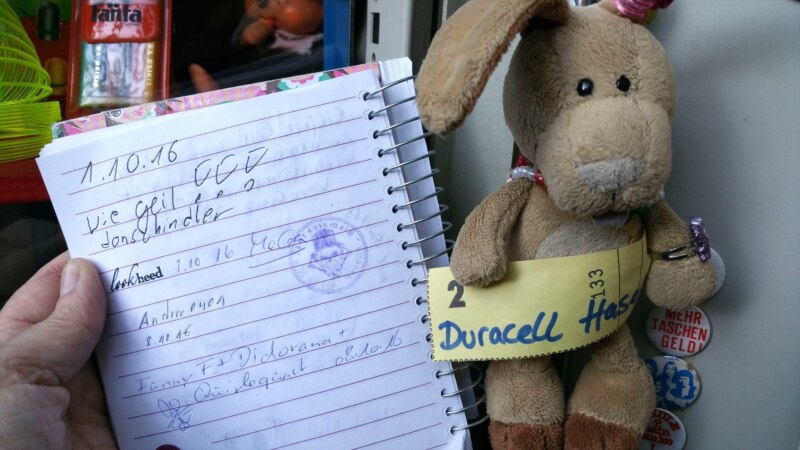 Fanta
1.10.16
Wie geil
donschindler
lookheed 1.10 16
8.10.16
Fanny F + Didovana +
Quirloquint 08.10.16
2
133
Duracell Has
MEHR
TASCHEN
GELD!